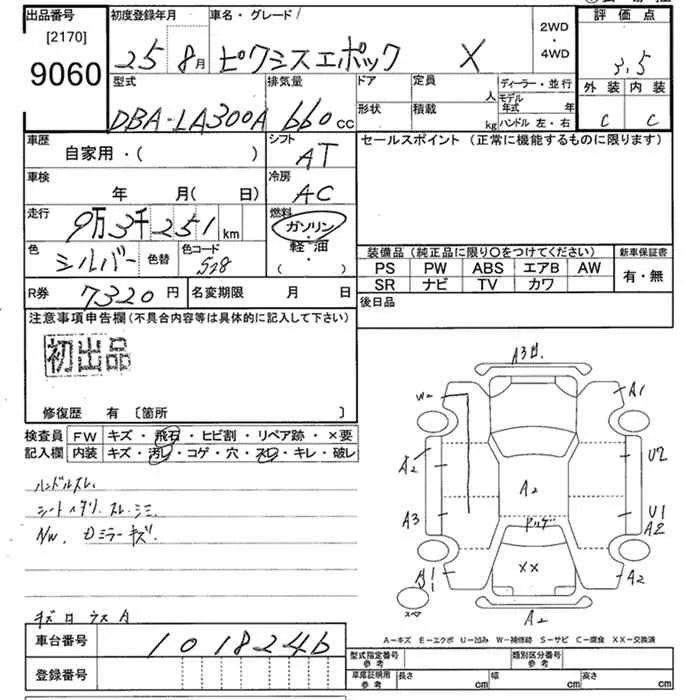 出品番号 [2170] 9060
初度登録年月 25 8月
車名・グレード ピクシスエポック X
2WD・4WD
評価点 3.5
外装 内装
C C
型式 DBA-LA300A
排気量 660cc
ドア
形状
定員 人
積載 kg
ディーラー・並行
モデル年式 年
ハンドル 左・右
車歴 自家用・( )
シフト AT
車検 年 月( 日)
冷房 AC
走行 9万3千251km
燃料 ガソリン・軽・油 ( ・ )
色 シルバー
色替
色コード S28
R券 7320円
名変期限 月 日
セールスポイント (正常に機能するものに限ります)
装備品(純正品に限り〇をつけてください)
PS PW ABS エアB AW
SR ナビ TV カワ
新車保証書 有・無
後日品
注意事項申告欄(不具合内容等は具体的に記入して下さい)
初出品
修復歴 有 〔箇所 〕
検査員記入欄
FW キズ・飛石・ヒビ割・リペア跡・×要
内装 キズ・汚レ・コゲ・穴・スレ・キレ・破レ
ハンドルスレ
シートヘタリ.スレ.シミ
A/W.
ミラーキズ
A3
W
A1
A2
U2
A2
A3
U1
A2
XX
A2
A2
スペア
A-キズ E-エクボ U-凹み W-補修跡 S-サビ C-腐食 XX-交換済
車台番号 1018246
登録番号
型式指定番号 参考
類別区分番号 参考
車庫証明用 参考
長さ cm 幅 cm 高さ cm